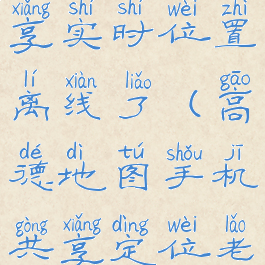 xiǎng shí shí wèi zhì
享实时位置
lí xiàn liǎo gāo
离线了（高
dé dì tú shǒu jī
德地图手机
gòng xiǎng dìng wèi lǎo
共享定位老